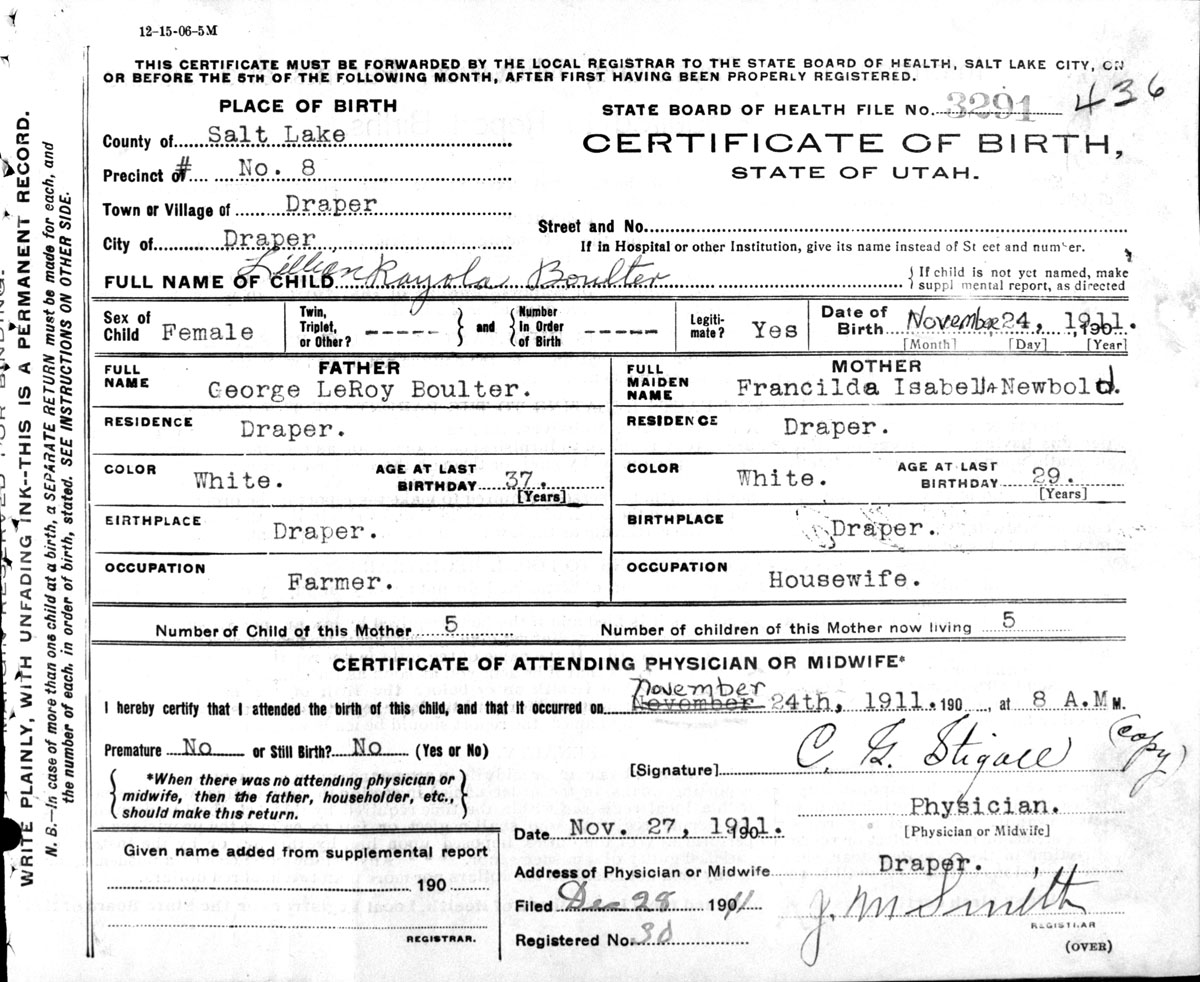 12-15-06-5M
THIS CERTIFICATE MUST BE FORWARDED BY THE LOCAL REGISTRAR TO THE STATE BOARD OF HEALTH, SALT LAKE CITY, ON
OR BEFORE THE 5TH OF THE FOLLOWING MONTH, AFTER FIRST HAVING BEEN PROPERLY REGISTERED.
PLACE OF BIRTH
STATE BOARD OF HEALTH FILE No. 3291 436
County of Salt Lake
CERTIFICATE OF BIRTH,
Precinct of # No. 8
STATE OF UTAH.
Town or Village of Draper
Street and No.
City of Draper
If in Hospital or other Institution, give its name instead of St eet and number.
FULL NAME OF CHILD Lillian Rayola Boulter
If child is not yet named, make
suppl mental report, as directed
Sex of Child Female
Twin, Triplet, or Other? -----
and
Number In Order of Birth -----
Legiti-mate? Yes
Date of Birth November 24, 1911. , 190
[Month] [Day] [Year]
FATHER
FULL NAME George LeRoy Boulter.
MOTHER
FULL MAIDEN NAME Francilda Isabella Newbold.
RESIDENCE Draper.
RESIDENCE Draper.
COLOR White. AGE AT LAST BIRTHDAY 37. [Years]
COLOR White. AGE AT LAST BIRTHDAY 29. [Years]
BIRTHPLACE Draper.
BIRTHPLACE Draper.
OCCUPATION Farmer.
OCCUPATION Housewife.
Number of Child of this Mother 5
Number of children of this Mother now living 5
CERTIFICATE OF ATTENDING PHYSICIAN OR MIDWIFE*
November
I hereby certify that I attended the birth of this child, and that it occurred on November 24th, 1911. 190 , at 8 A.M M.
Premature No or Still Birth? No (Yes or No)
[Signature] C. G. Stigall (Copy)
*When there was no attending physician or
midwife, then the father, householder, etc.,
should make this return.
Physician.
[Physician or Midwife]
Date Nov. 27, 1911. 190
Given name added from supplemental report
190
REGISTRAR.
Address of Physician or Midwife Draper.
Filed Dec 28 1911
J. M Smith
REGISTRAR
Registered No. 30
(OVER)
WRITE PLAINLY, WITH UNFADING INK--THIS IS A PERMANENT RECORD.
N. B.—In case of more than one child at a birth, a SEPARATE RETURN must be made for each, and
the number of each, in order of birth, stated. SEE INSTRUCTIONS ON OTHER SIDE.